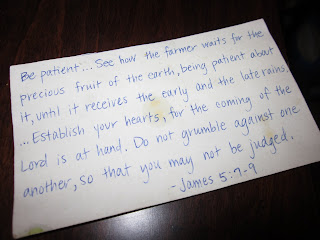 Be patient... See how the farmer waits for the
precious fruit of the earth, being patient about
it, until it receives the early and the late rains.
...Establish your hearts, for the coming of the
Lord is at hand. Do not grumble against one
another, so that you may not be judged.
- James 5:7-9